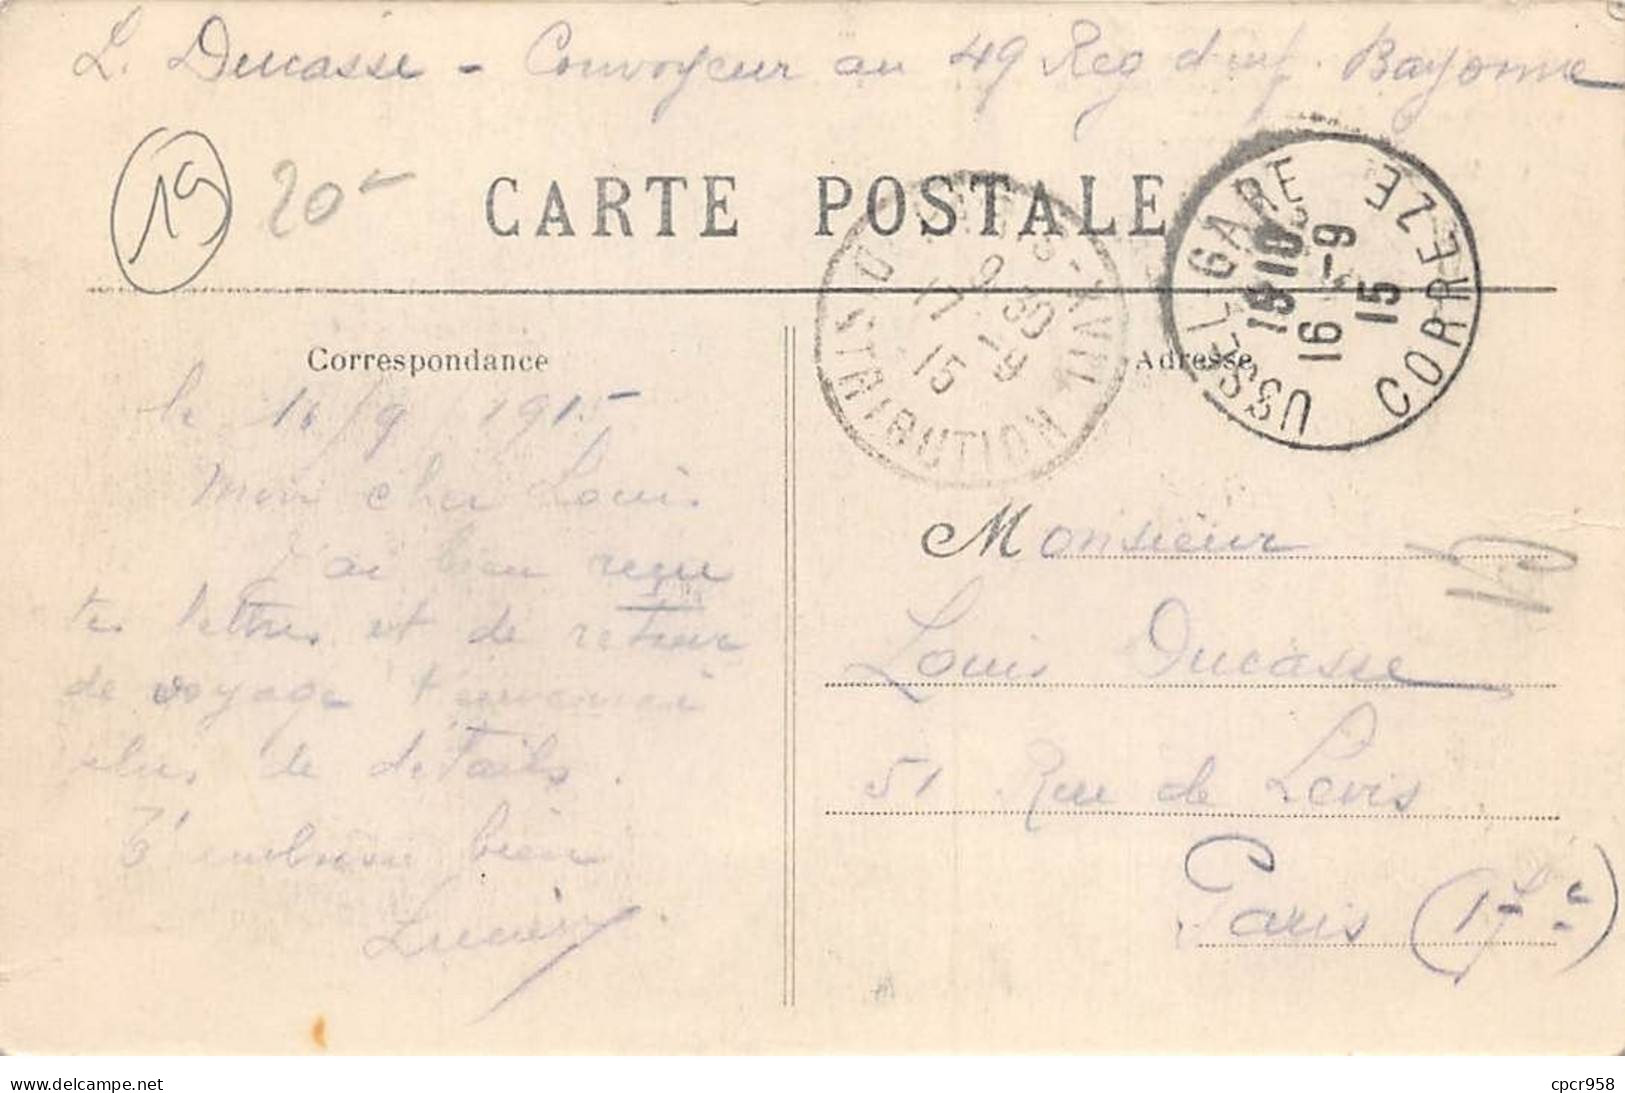 L. Ducasse - Convoyeur au 49 Reg d'inf. Bayonne
19
20
CARTE POSTALE
USSEL-GARE CORRÈZE
18 10
16 -9
15
PARIS-XVII DISTRIBUTION
17 9
15
Correspondance
Adresse
le 16/9/1915
Mon cher Louis
J'ai bien reçu
tes lettres et de retour
de voyage t'enverrai
plus de détails.
T'embrasse bien
Lucien
Monsieur
19
Louis Ducasse
51 Rue de Levis
Paris (17e)
delcampe.net
cpcr958